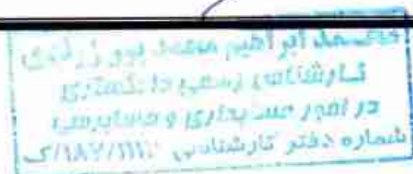 محمد ابراهیم محمد پور زرندی
کارشناس رسمی دادگستری
در امور حسابداری و حسابرسی
شماره دفتر کارشناسی